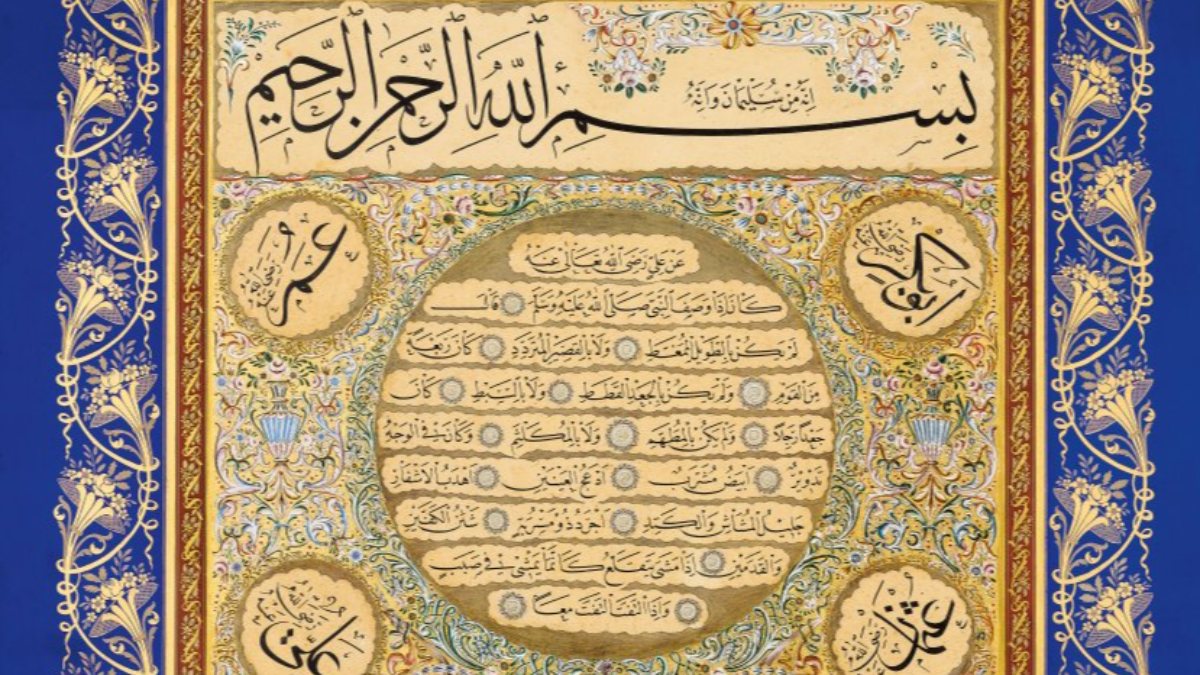 إنه من سليمان وإنه
بسم الله الرحمن الرحيم
ابوبكر
رضي الله عنه
عمر
رضي الله عنه
عن علي رضي الله تعالى عنه
كان إذا وصف النبي صلى الله عليه وسلم قال
لم يكن بالطويل الممغط ولا بالقصير المتردد كان ربعة
من القوم ولم يكن بالجعد القطط ولا بالسبط كان
جعدا رجلا ولم يكن بالمطهم ولا بالمكلثم وكان في الوجه
تدوير أبيض مشرب أدعج العينين أهدب الأشفار
جليل المشاش والكتد أجرد ذو مسربة شثن الكفين
والقدمين إذا مشى يتقلع كأنما يمشي في صبب
وإذا التفت التفت معا
عثمان
رضي الله عنه
علي